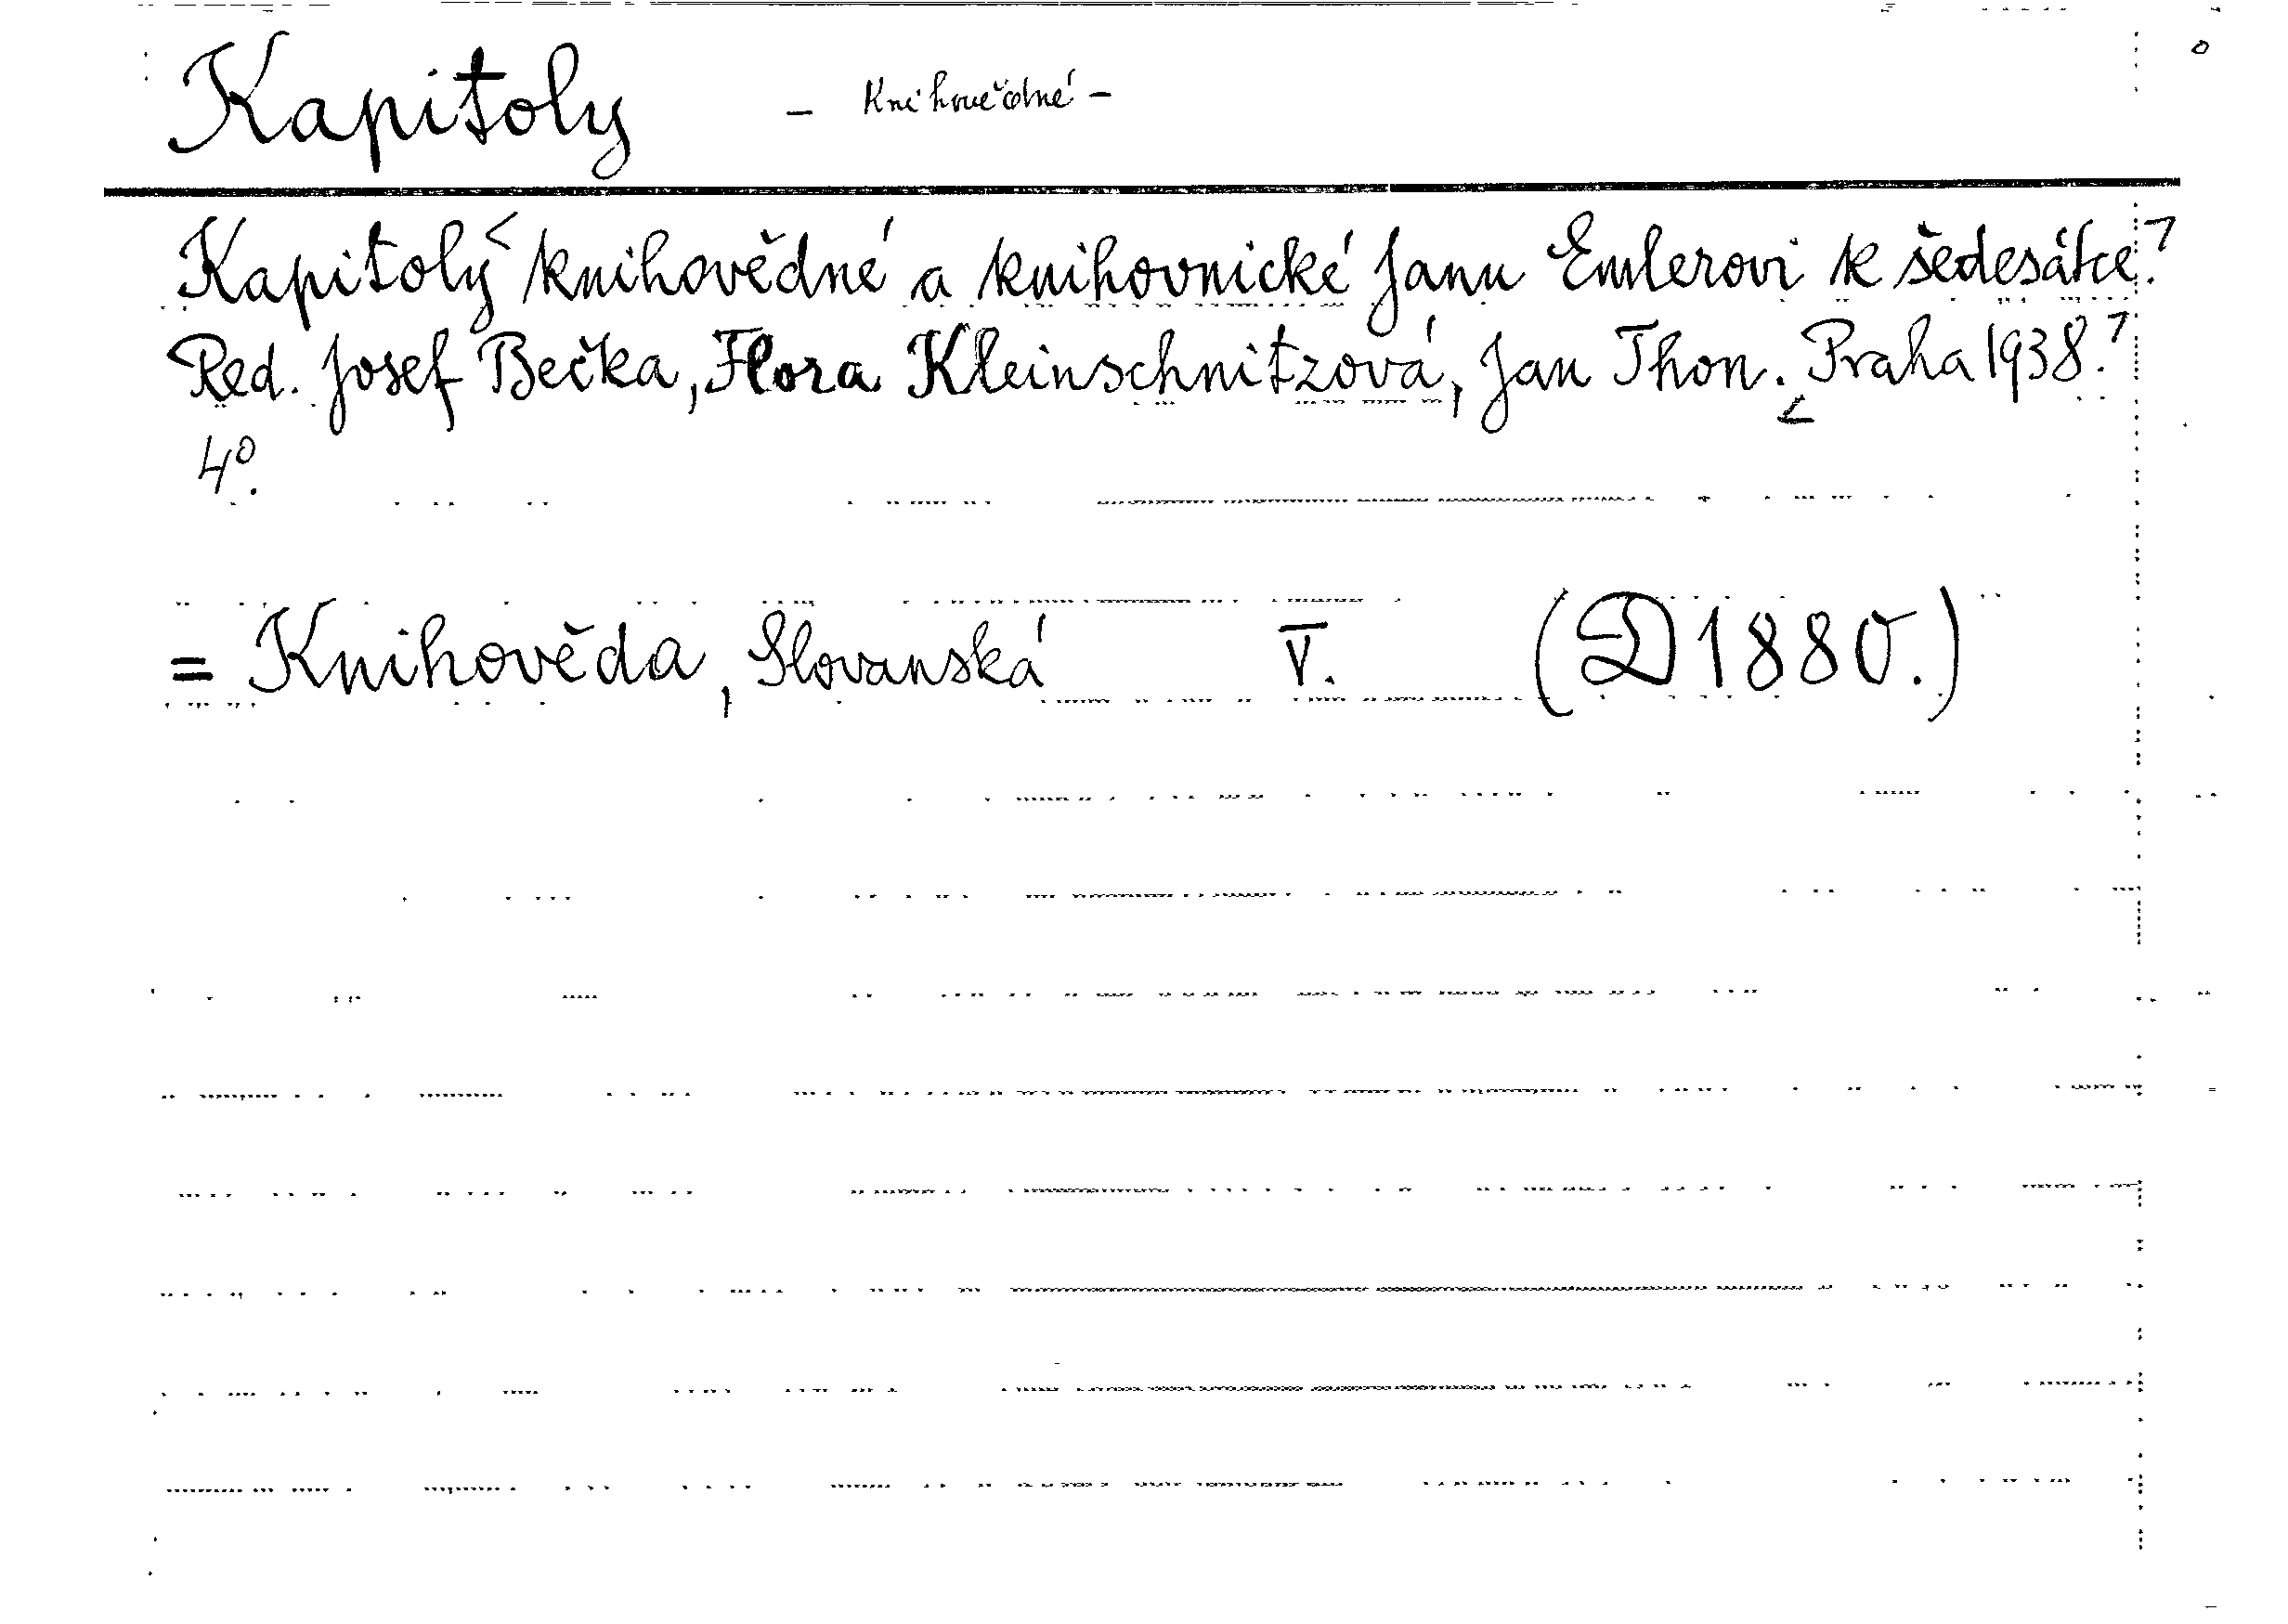 Kapitoly - Knihovědné -
Kapitoly knihovědné a knihovnické Janu Emlerovi k šedesátce.
Red. Josef Bečka, Flora Kleinschnitzová, Jan Thon. Praha 1938.
4°.
= Knihověda, Slovanská V. (D 1880.)